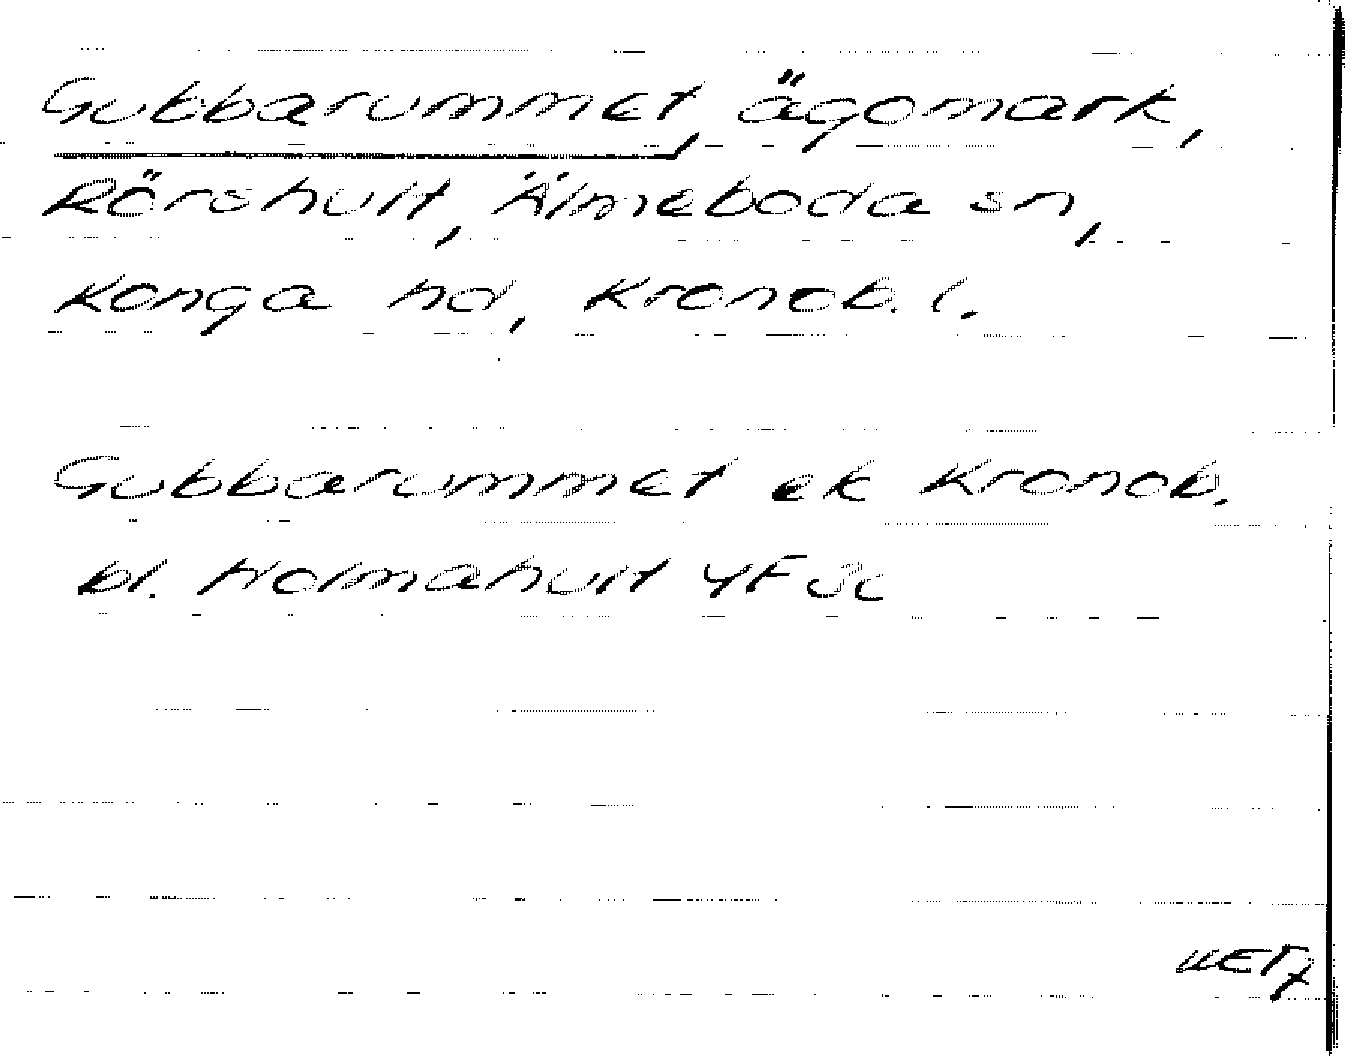 Gubbarummet, ägomark,
Rörshult, Älmeboda sn,
Konga hd, Kronob. l.
Gubbarummet ek Kronob.
bl. Holmahult 4F3c